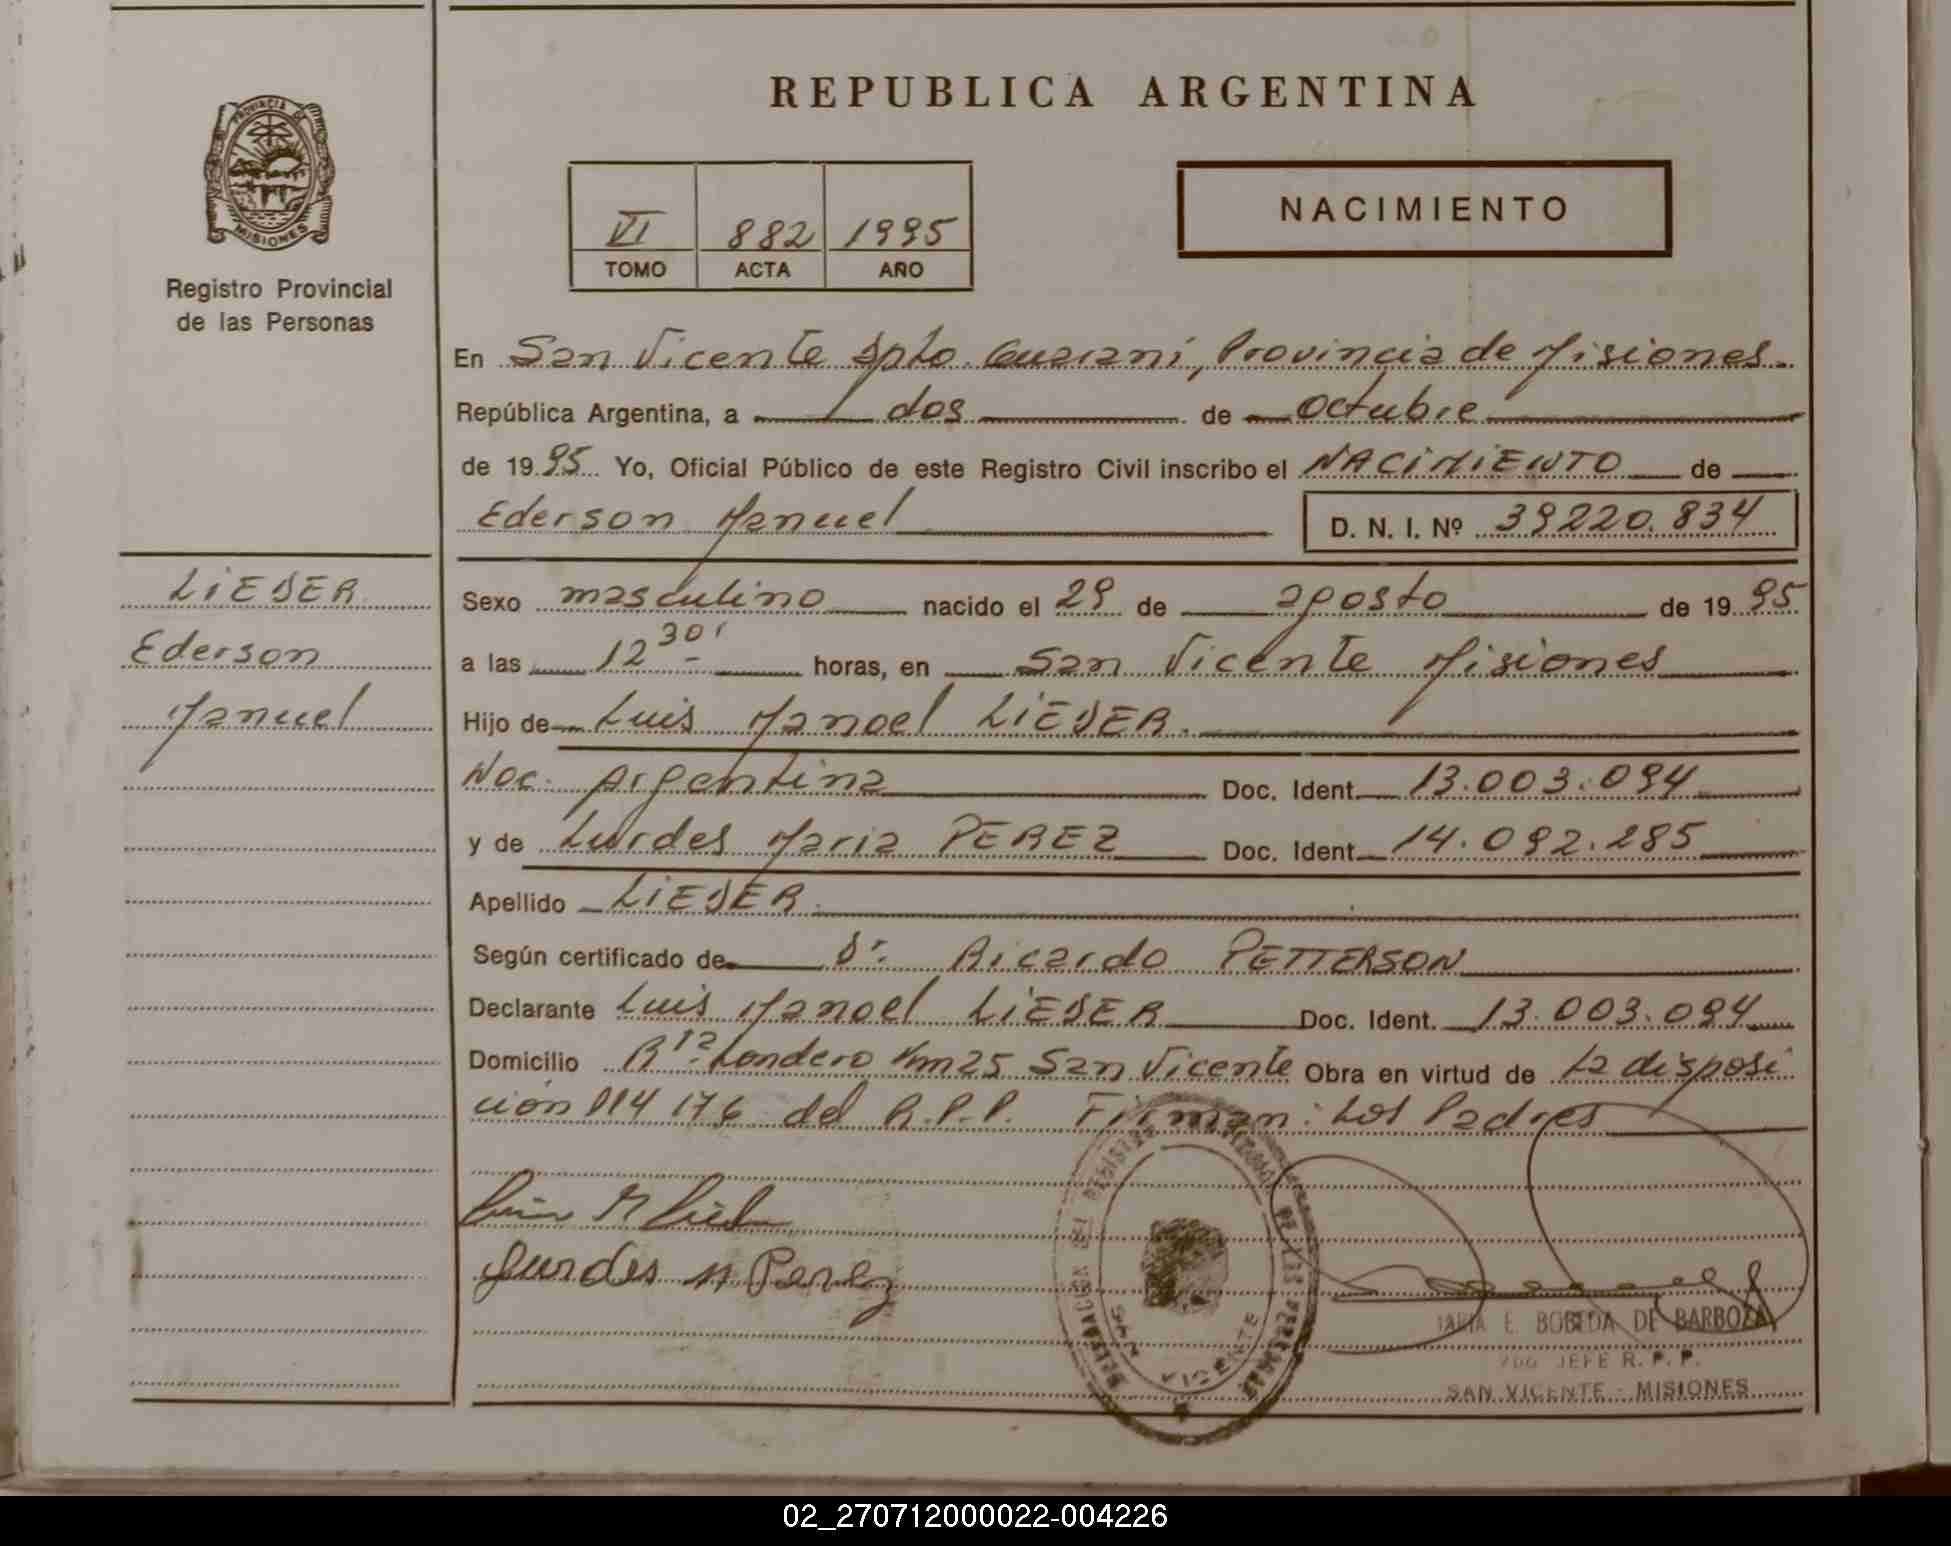 REPUBLICA ARGENTINA
PROVINCIA DE
MISIONES
Registro Provincial
de las Personas
VI 882 1995
TOMO ACTA AÑO
NACIMIENTO
En San Vicente Dpto. Guarani, Provincia de Misiones
República Argentina, a dos de octubre
de 1995 Yo, Oficial Público de este Registro Civil inscribo el NACIMIENTO de
Ederson Manuel D. N. I. Nº 39220.834
LIEBER
Ederson
Manuel
Sexo masculino nacido el 29 de agosto de 1995
a las 12 30' horas, en San Vicente Misiones
Hijo de Luis Manoel LIEBER.
Nac. Argentina Doc. Ident. 13.003.094
y de Lurdes Maria PEREZ Doc. Ident. 14.092.285
Apellido LIEBER
Según certificado de Dr. Ricardo PETTERSON
Declarante Luis Manoel LIEBER Doc. Ident. 13.003.094
Domicilio Londero Km 25 San Vicente Obra en virtud de la disposi
ción 176 del R.P.P. Firman: Los Padres
Lurdes M Perez
DELEGACION DEL REGISTRO PROVINCIAL DE LAS PERSONAS
SAN VICENTE
MARIA E. BOBEDA DE BARBOZA
JEFE R. P. P.
SAN VICENTE - MISIONES
02_270712000022-004226